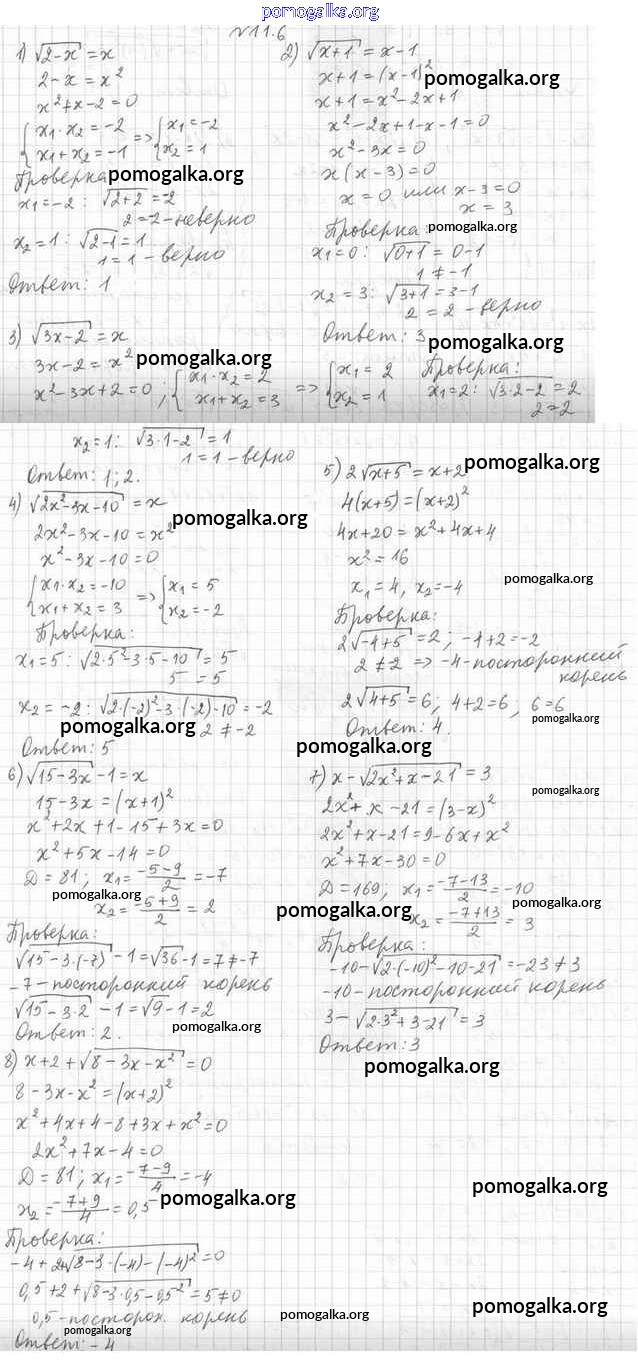 pomogalka.org
№11.6
1) √(2-x) = x
2-x = x²
x²+x-2=0
{x₁·x₂=-2 => {x₁=-2
{x₁+x₂=-1 {x₂=1
Проверка
pomogalka.org
x₁=-2: √(2+2)=-2
2=-2-неверно
x₂=1: √(2-1)=1
1=1-верно
Ответ: 1
2) √(x+1) = x-1
x+1=(x-1)²
pomogalka.org
x+1=x²-2x+1
x²-2x+1-x-1=0
x²-3x=0
x(x-3)=0
x=0 или x-3=0
x=3
Проверка:
pomogalka.org
x₁=0: √(0+1)=0-1
1≠-1
x₂=3: √(3+1)=3-1
2=2-верно
Ответ: 3
pomogalka.org
3) √(3x-2)=x
3x-2=x²
pomogalka.org
x²-3x+2=0; {x₁·x₂=2 => {x₁=2
{x₁+x₂=3 {x₂=1
Проверка:
x₁=2: √(3·2-2)=2
2=2
x₂=1: √(3·1-2)=1
1=1-верно
Ответ: 1; 2.
4) √(2x²-3x-10)=x
pomogalka.org
2x²-3x-10=x²
x²-3x-10=0
{x₁·x₂=-10 => {x₁=5
{x₁+x₂=3 {x₂=-2
Проверка:
x₁=5: √(2·5²-3·5-10)=5
5=5
x₂=-2: √(2·(-2)²-3·(-2)-10)=-2
pomogalka.org
2≠-2
Ответ: 5
5) 2√(x+5)=x+2
pomogalka.org
4(x+5)=(x+2)²
4x+20=x²+4x+4
x²=16
x₁=4, x₂=-4
pomogalka.org
Проверка:
2√(-4+5)=2; -4+2=-2
2≠2 => -4-посторонний
корень
2√(4+5)=6; 4+2=6; 6=6
pomogalka.org
Ответ: 4.
pomogalka.org
6) √(15-3x)-1=x
15-3x=(x+1)²
x²+2x+1-15+3x=0
x²+5x-14=0
D=81; x₁=(-5-9)/2=-7
pomogalka.org
x₂=(-5+9)/2=2
Проверка:
√(15-3·(-7))-1=√36-1=7≠-7
-7-посторонний корень
√(15-3·2)-1=√9-1=2
Ответ: 2.
pomogalka.org
7) x-√(2x²+x-21)=3
pomogalka.org
2x²+x-21=(3-x)²
2x²+x-21=9-6x+x²
x²+7x-30=0
D=169, x₁=(-7-13)/2=-10
pomogalka.org
x₂=(-7+13)/2=3
pomogalka.org
Проверка:
-10-√(2·(-10)²-10-21)=-23≠3
-10-посторонний корень
3-√(2·3²+3-21)=3
Ответ: 3
pomogalka.org
8) x+2+√(8-3x-x²)=0
8-3x-x²=(x+2)²
x²+4x+4-8+3x+x²=0
2x²+7x-4=0
D=81; x₁=(-7-9)/4=-4
x₂=(-7+9)/4=0,5
pomogalka.org
pomogalka.org
Проверка:
-4+2+√(8-3·(-4)-(-4)²)=0
0,5+2+√(8-3·0,5-0,5²)=5≠0
0,5-посторон. корень
pomogalka.org
pomogalka.org
pomogalka.org
Ответ: -4